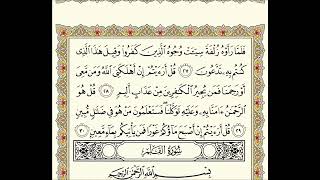 فَلَمَّا رَأَوْهُ زُلْفَةً سِيٓـَٔتْ وُجُوهُ ٱلَّذِينَ كَفَرُوا۟ وَقِيلَ هَٰذَا ٱلَّذِى
كُنتُم بِهِۦ تَدَّعُونَ ٢٧ قُلْ أَرَءَيْتُمْ إِنْ أَهْلَكَنِىَ ٱللَّهُ وَمَن مَّعِىَ
أَوْ رَحِمَنَا فَمَن يُجِيرُ ٱلْكَٰفِرِينَ مِنْ عَذَابٍ أَلِيمٍ ٢٨ قُلْ هُوَ
ٱلرَّحْمَٰنُ ءَامَنَّا بِهِۦ وَعَلَيْهِ تَوَكَّلْنَا فَسَتَعْلَمُونَ مَنْ هُوَ فِى ضَلَٰلٍ مُّبِينٍ
٢٩ قُلْ أَرَءَيْتُمْ إِنْ أَصْبَحَ مَآؤُكُمْ غَوْرًا فَمَن يَأْتِيكُم بِمَآءٍ مَّعِينٍۭ ٣٠
سُورَةُ ٱلْقَلَمِ
بِسْمِ ٱللَّهِ ٱلرَّحْمَٰنِ ٱلرَّحِيمِ